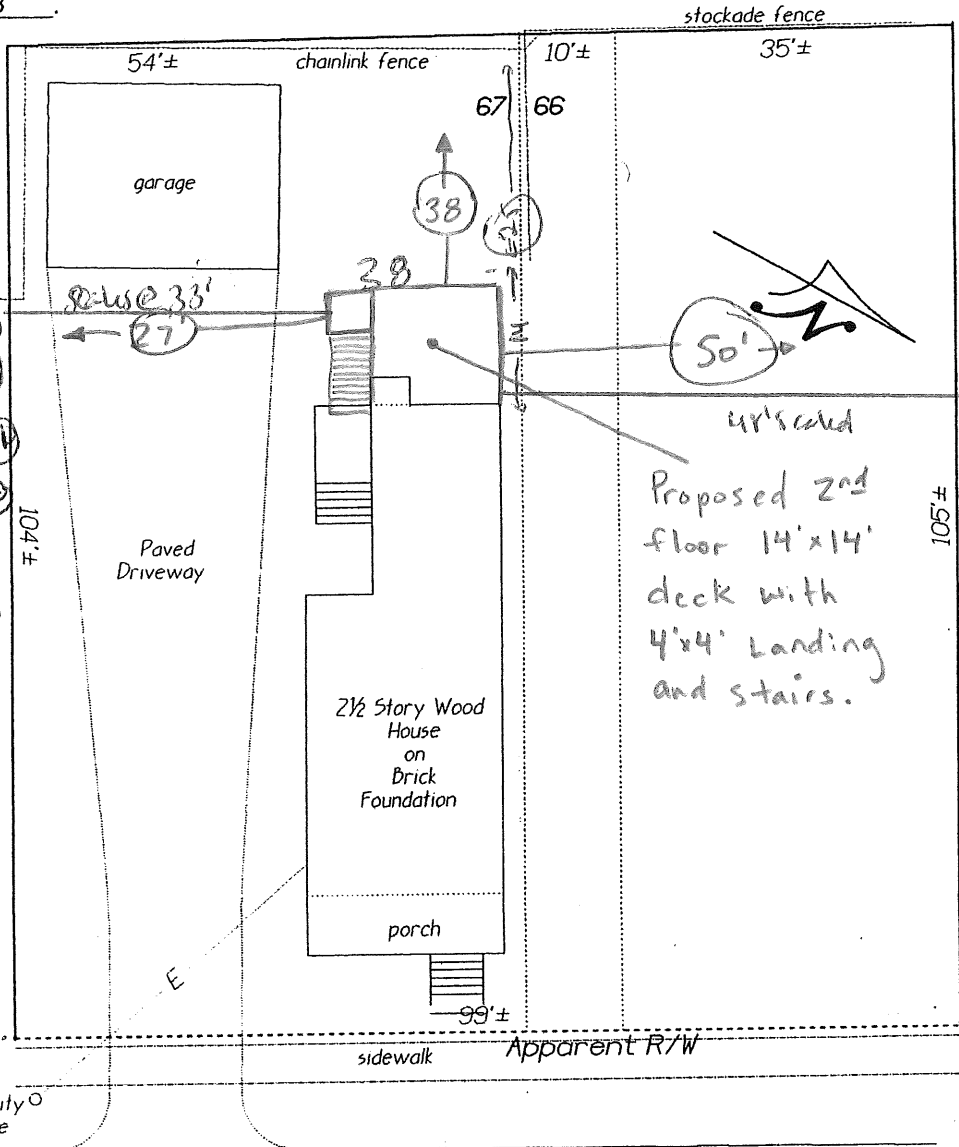 stockade fence
54'±
chainlink fence
10'±
35'±
67
66
garage
38
28
scales @ 33'
27'
50'
48' scaled
Proposed 2nd
floor 14'x14'
deck with
4'x4' Landing
and stairs.
104'±
105'±
Paved
Driveway
2½ Story Wood
House
on
Brick
Foundation
porch
E
99'±
sidewalk
Apparent R/W